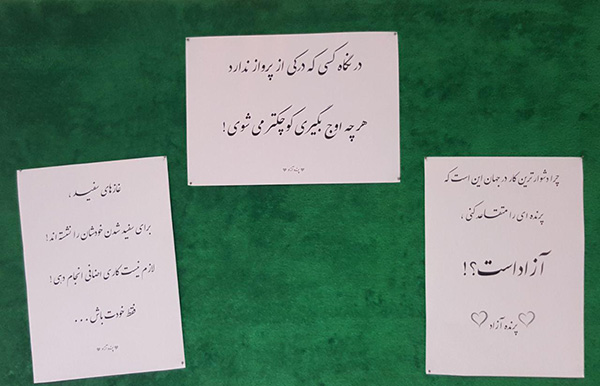 در نگاه کسی که درکی از پرواز ندارد
هر چه اوج بگیری کوچکتر می شوی!
چرا دشوارترین کار در جهان این است که
پرنده ای را متقاعد کنی،
آزاد است؟!
پرنده آزاد
غازهای سفید،
برای سفید شدن خودشان را نشسته اند!
لازم نیست کاری اضافی انجام دهی!
فقط خودت باش...